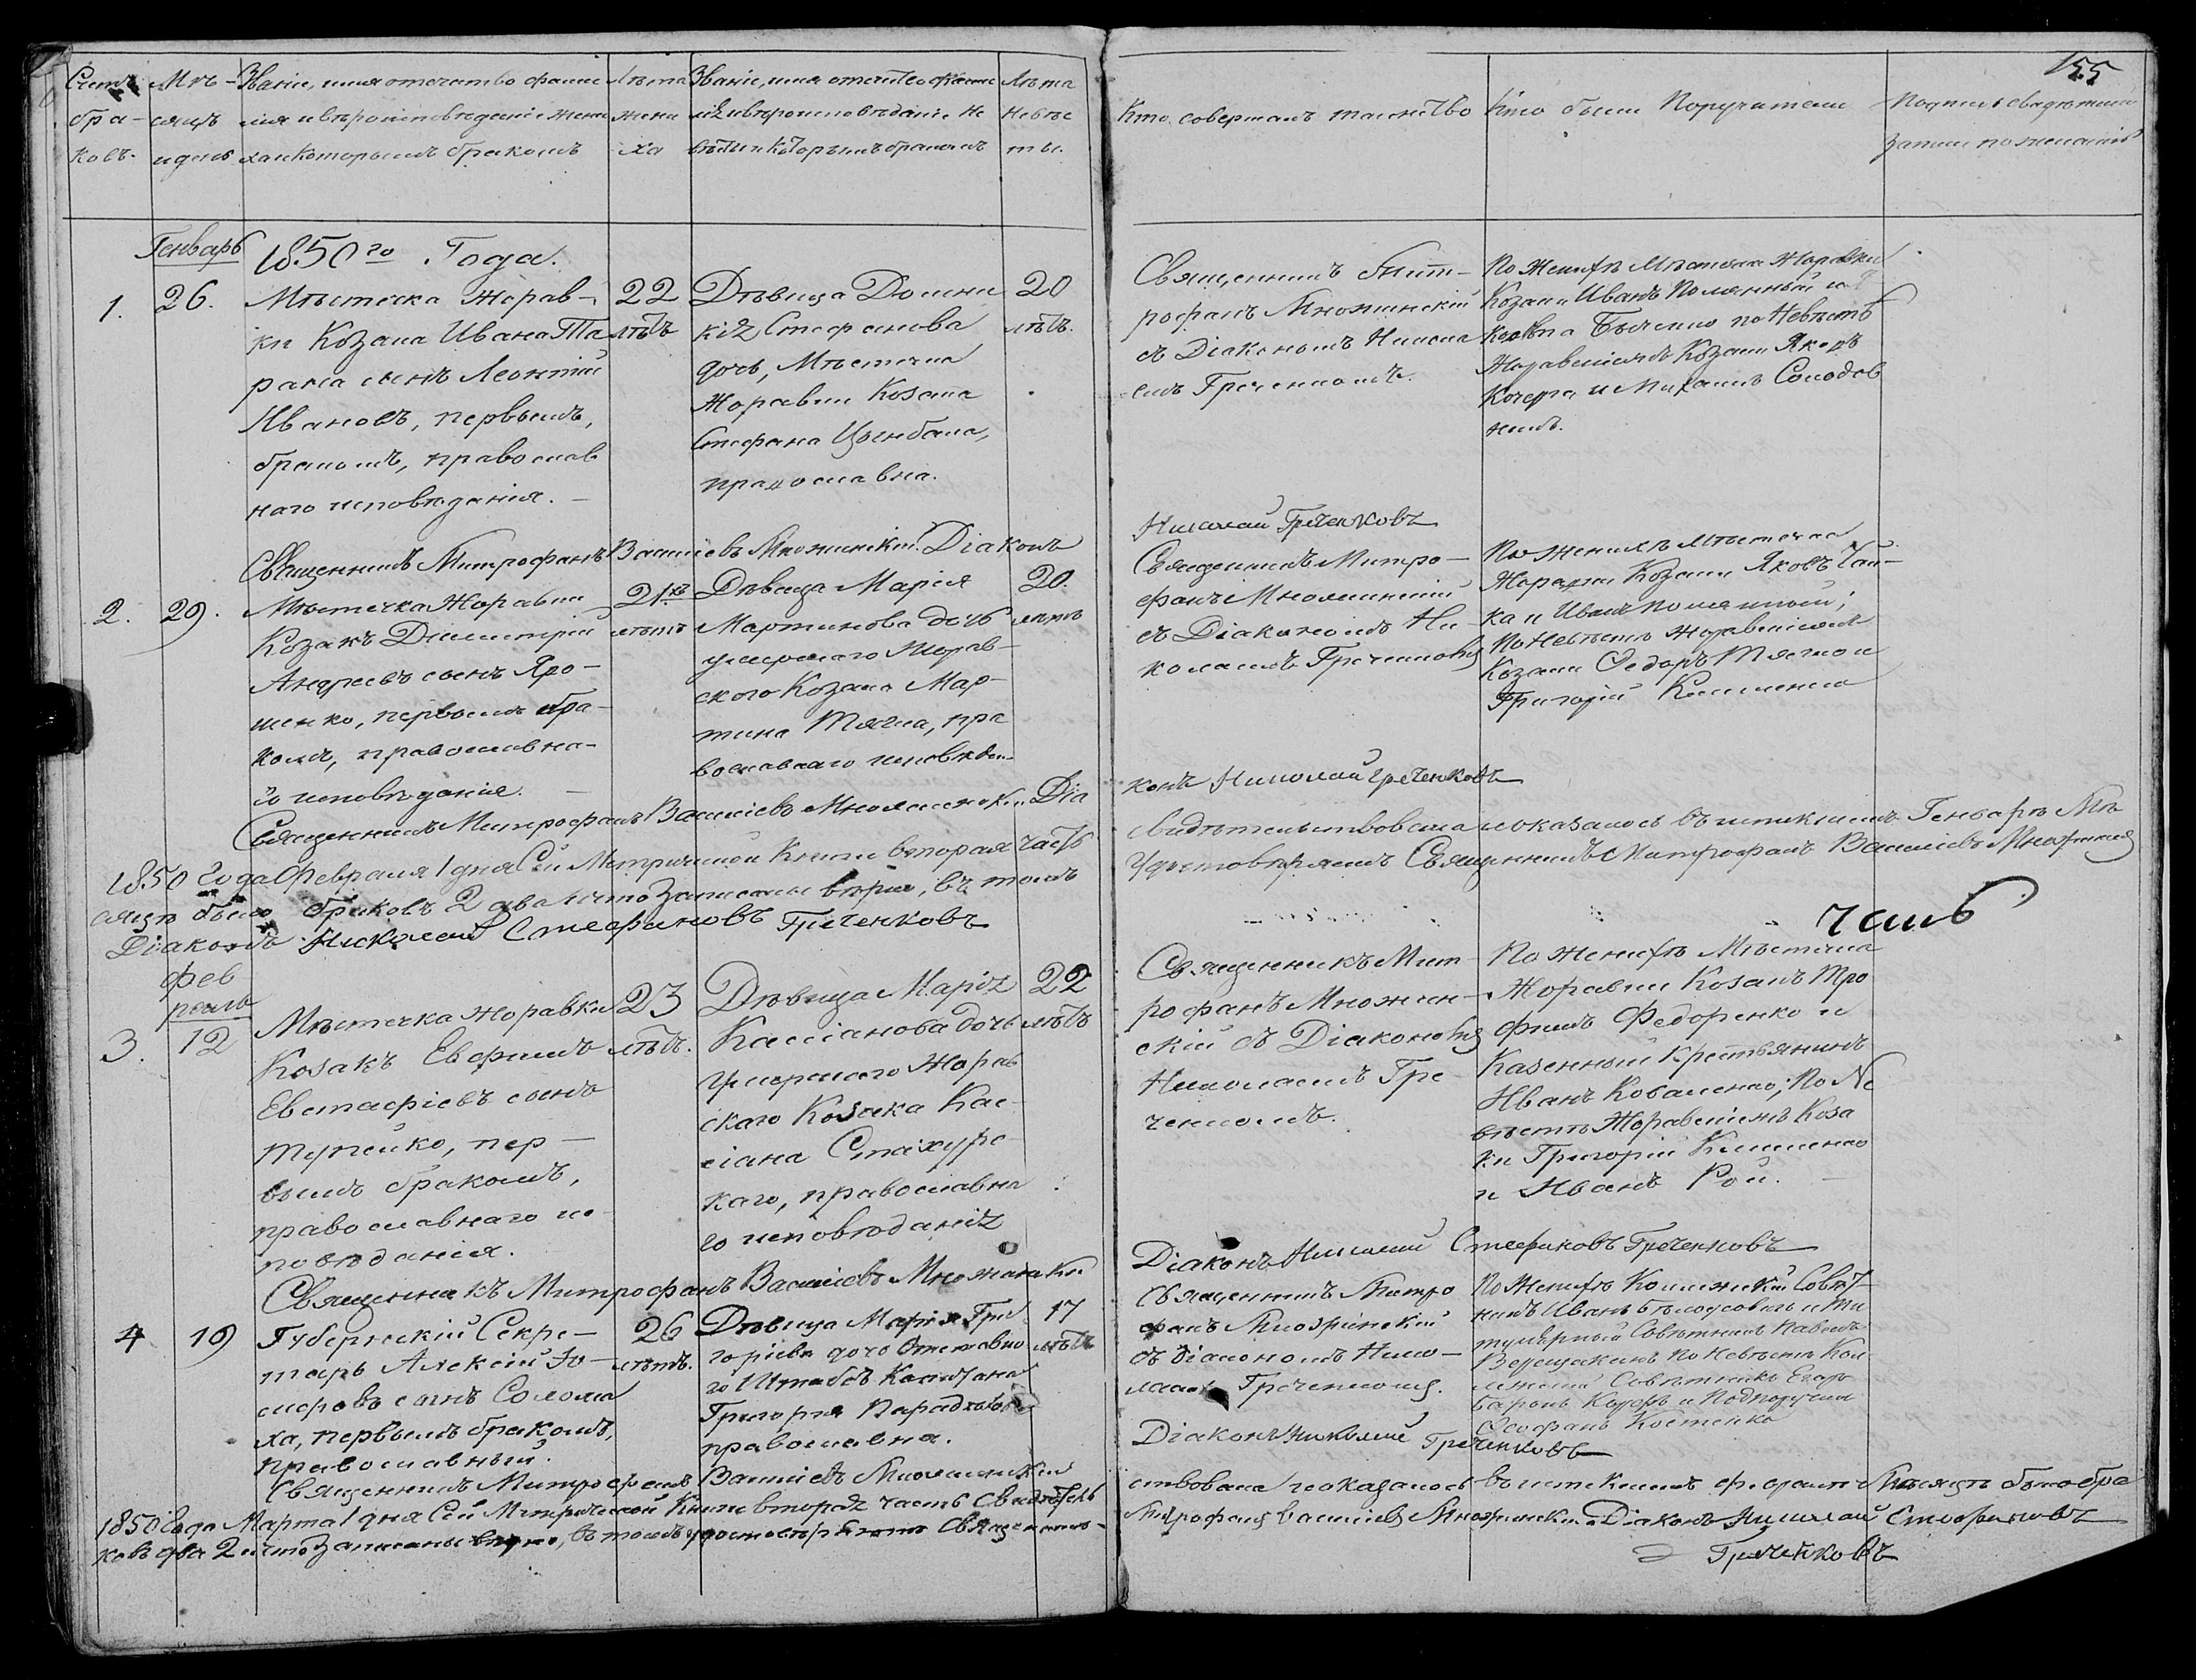 155
Счетъ бра-ковъ.
Мѣ-сяцъ и день
Званіе, имя отечество фами
лія и вѣроисповѣданіе жени
ха и которымъ бракомъ
Лѣта
жени
ха
Званіе, имя отечество фами
лія и вѣроисповѣданіе не
вѣсты и которымъ бракомъ
Лѣта
невѣс
ты.
Кто совершалъ таинство
Кто были Поручители
Подпись свидѣтелей
записи по желанію
Генварь
1850го Года.
1.
26.
Мѣстечка Жорав-
ки Козака Ивана Та
рана сынъ Леонтій
Ивановъ, первымъ,
бракомъ, православ
наго исповѣданія.
22
лѣтъ
Дѣвица Домни
кія, Стефанова
дочь, Мѣстечка
Жоравки Козака
Стефана Цымбала,
православна.
20
лѣтъ.
Священникъ Мит-
рофанъ Множинскій
съ Діакономъ Никола
емъ Греченкомъ.
По Женихѣ Мѣстечка Жоравки
Козаки Иванъ Полянный и
по Невѣстѣ
Жоравскіе Козаки Яковъ
Кочерга и Михаилъ Солодов
никъ.
Священникъ Митрофанъ Василіевъ Множинскій. Діаконъ
Николай Греченковъ
2.
29.
Мѣстечка Жоравки
Козакъ Димитрій
Андреевъ сынъ Яро-
шенко, первымъ бра-
комъ, православна-
го исповѣданія.
21
лѣтъ
Дѣвица Марія
Мартинова дочь
умершаго Жорав-
скаго Козака Мар-
тина Тягла, пра
вославнаго исповѣдан
20.
лѣтъ
Священникъ Митро-
фанъ Множинскій
съ Діакономъ Ни-
колаемъ Греченкомъ
По Женихѣ Мѣстечка
Жоравки Козаки Яковъ Чай-
ка и Иванъ Полянный;
По Невѣстѣ Жоравскіе
Козаки Федоръ Тягло и
Григорій Клименко
Священникъ Митрофанъ Василіевъ Множинскій. Діа
конъ Николай Греченковъ
1850 Года Февраля 1 дня Сей Метрической Книги вторая часть
свидѣтельствована и оказалось въ истекшемъ Генварѣ Мѣ
сяцѣ было браковъ 2 два что записаны вѣрно, въ томъ
удостовѣряемъ Священникъ Митрофанъ Василіевъ Множинскій
Діаконъ Николай Стефановъ Греченковъ
Фев
раль
3.
12
Мѣстечка Жоравки
Козакъ Ефимъ
Евстафіевъ сынъ
первымъ бракомъ,
православнаго ис
повѣданія.
23
лѣтъ.
Дѣвица Марія
Кассіанова дочь
умершаго Жорав
скаго Козака Кас-
сіана Стахурс-
каго, православна
го исповѣданія
22
лѣтъ
Священникъ Мит-
рофанъ Множин-
скій съ Діакономъ
Николаемъ Гре
ченкомъ.
По Женихѣ Мѣстечка
Жоравки Козакъ Тро
фимъ Федоренко и
Казенный Крестьянинъ
Иванъ Коваленко; По Не
вѣстѣ Жоравскіе Коза
ки Григорій Клименко
и Иванъ Рой.
Священникъ Митрофанъ Василіевъ Множинскій
Діаконъ Николай Стефановъ Греченковъ
4
19
Губернскій Секре-
тарь Алексій
сынъ Солома
ха, первымъ бракомъ,
православный.
26
лѣтъ.
Дѣвица Марія Гри
горіева дочь Отставно
го Штабсъ Капитана
Григорія
православна.
17
лѣтъ
Священникъ Митро
фанъ Множинскій
съ Діакономъ Нико-
лаемъ Греченкомъ.
По Женихѣ Коллежскій Совѣт
никъ Иванъ Бѣлоусовичъ и Ти
тулярный Совѣтникъ Павелъ
Верещакинъ По Невѣстѣ Кол
лежскій Совѣтникъ Егоръ
Баронъ Корфъ и Подпоручикъ
Феофанъ Костенко
Священникъ Митрофанъ Василіевъ Множинскій
Діаконъ Николай Греченковъ
1850 Года Марта 1 дня Сей Метрической Книги вторая часть Свидѣтель
ствована и оказалось въ истекшемъ Февралѣ Мѣсяцѣ было бра
ковъ два 2 что записаны вѣрно, въ томъ удостовѣряютъ Священникъ
Митрофанъ Василіевъ Множинскій Діаконъ Николай Стефановъ
Греченковъ